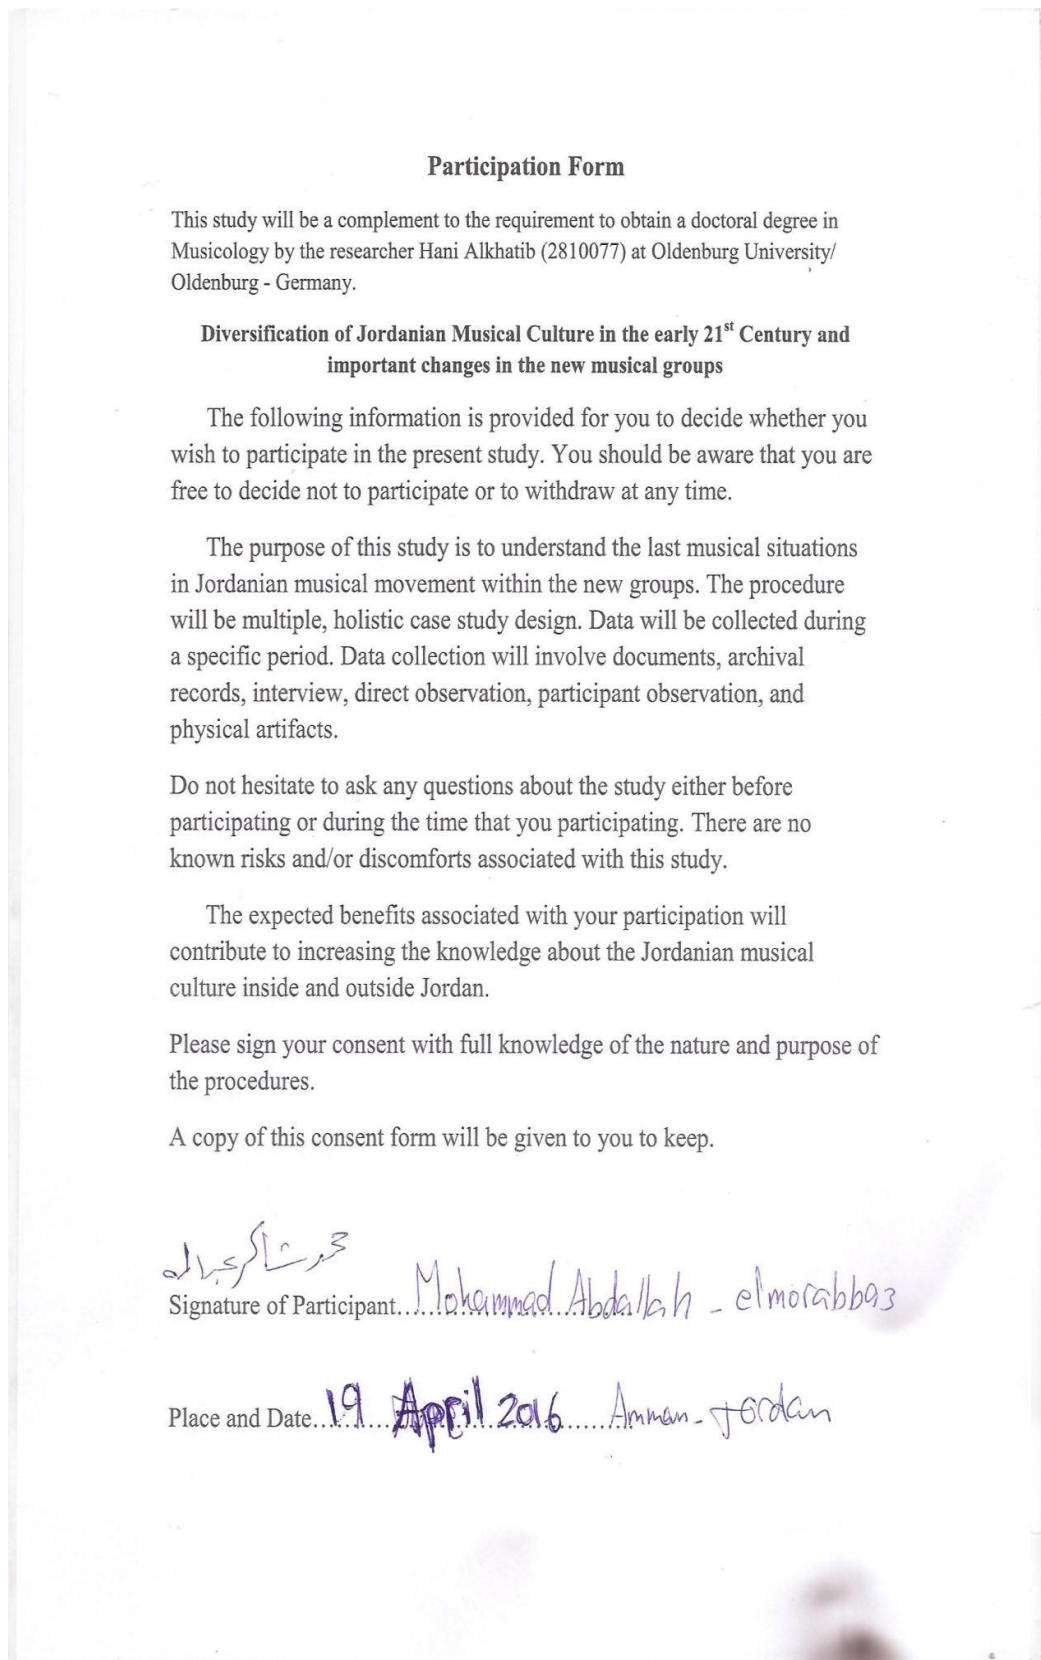 Participation Form
This study will be a complement to the requirement to obtain a doctoral degree in
Musicology by the researcher Hani Alkhatib (2810077) at Oldenburg University/
Oldenburg - Germany.
Diversification of Jordanian Musical Culture in the early 21st Century and
important changes in the new musical groups
The following information is provided for you to decide whether you
wish to participate in the present study. You should be aware that you are
free to decide not to participate or to withdraw at any time.
The purpose of this study is to understand the last musical situations
in Jordanian musical movement within the new groups. The procedure
will be multiple, holistic case study design. Data will be collected during
a specific period. Data collection will involve documents, archival
records, interview, direct observation, participant observation, and
physical artifacts.
Do not hesitate to ask any questions about the study either before
participating or during the time that you participating. There are no
known risks and/or discomforts associated with this study.
The expected benefits associated with your participation will
contribute to increasing the knowledge about the Jordanian musical
culture inside and outside Jordan.
Please sign your consent with full knowledge of the nature and purpose of
the procedures.
A copy of this consent form will be given to you to keep.
Signature of Participant...Mohammad Abdallah - elmorabba3
Place and Date...19 April 2016......Amman - Jordan